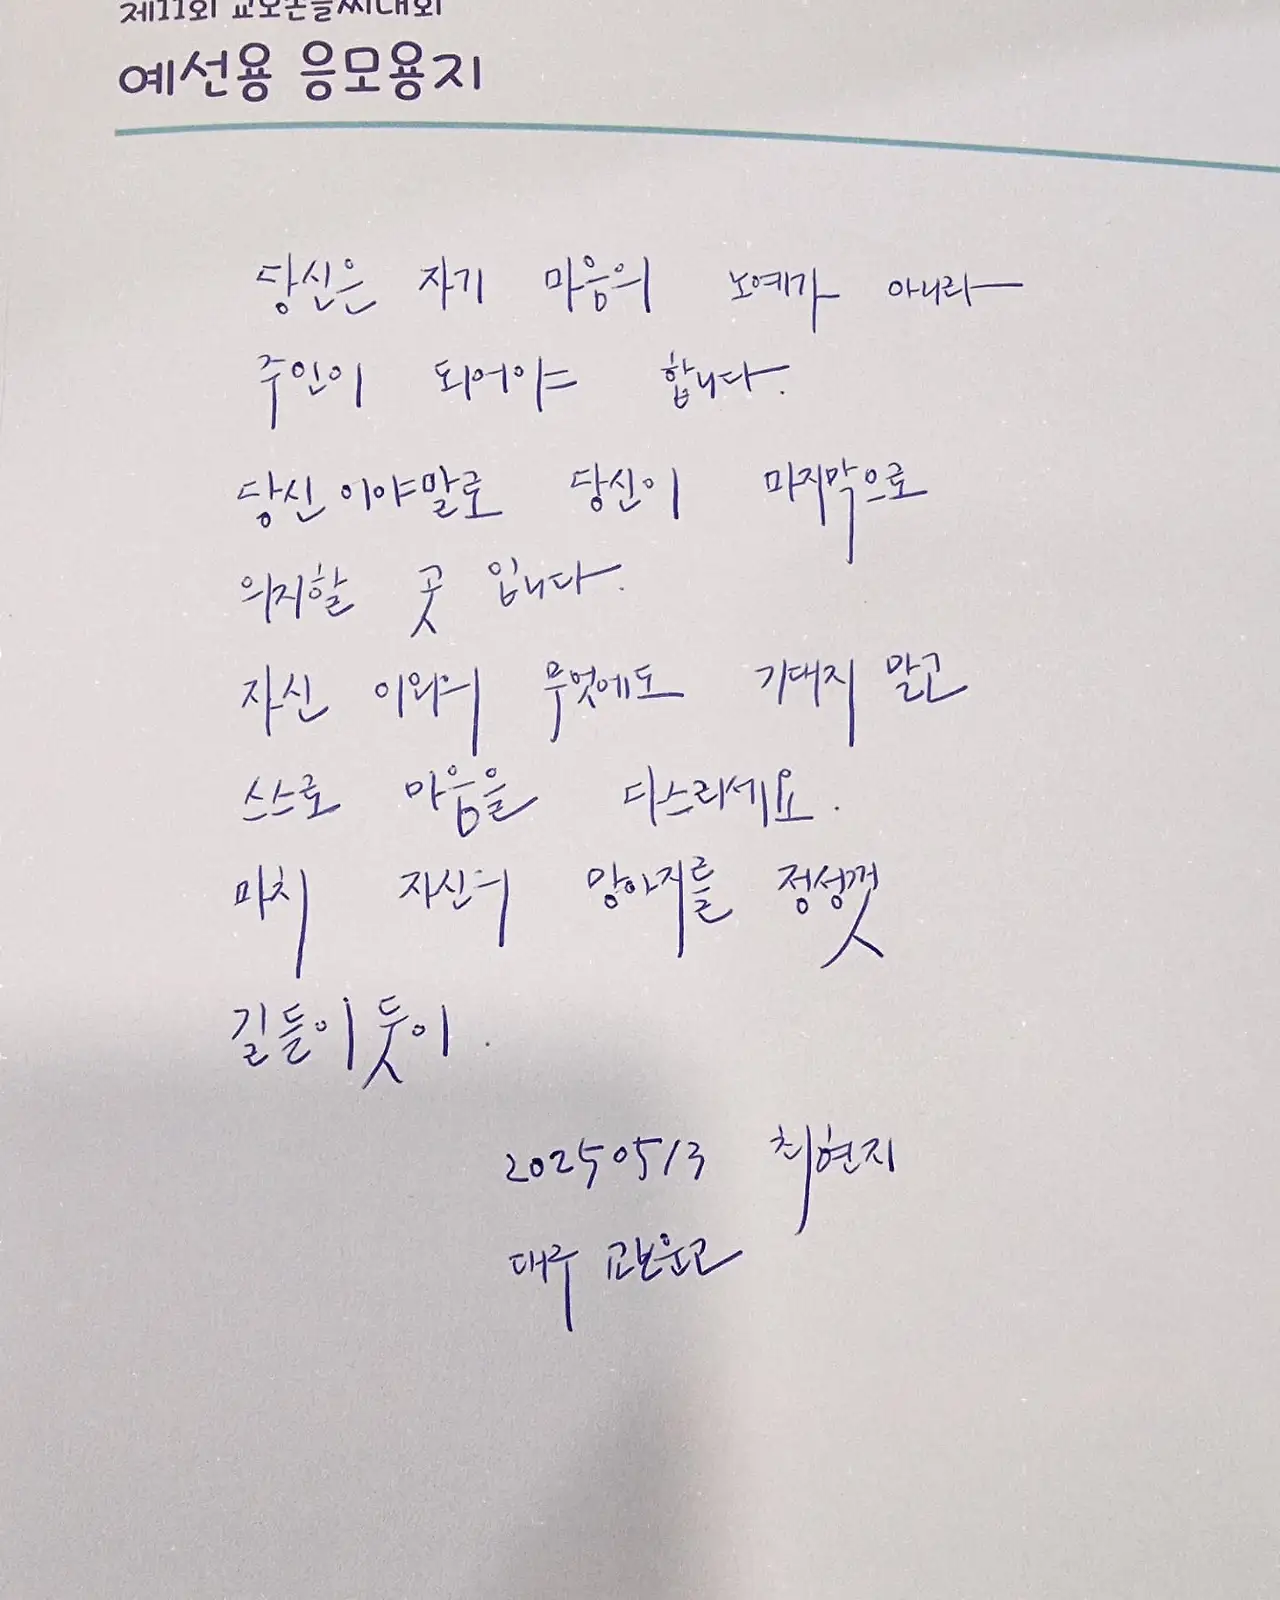 제11회 교보손글씨대회
예선용 응모용지
당신은 자기 마음의 노예가 아니라
주인이 되어야 합니다.
당신이야말로 당신이 마지막으로
의지할 곳 입니다.
자신 이외의 무엇에도 기대지 말고
스스로 마음을 다스리세요.
마치 자신의 망아지를 정성껏
길들이듯이.
20250513 최현지
교보문고